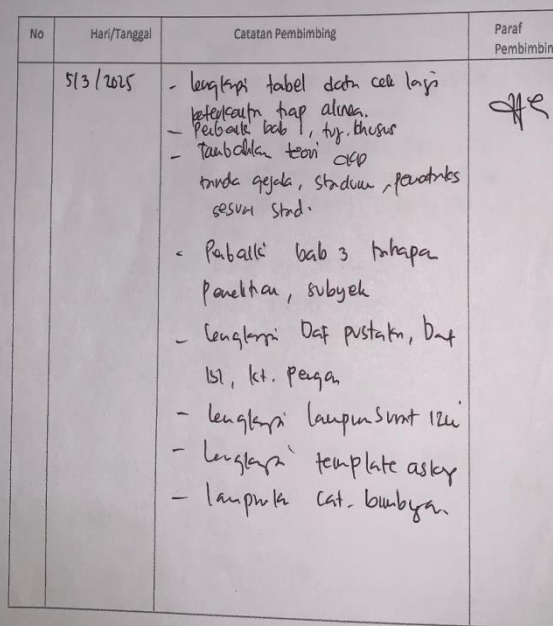 No Hari/Tanggal Catatan Pembimbing Paraf
Pembimbin
5/3/2025 - lengkapi tabel data cek lagi
keterkaitn tiap alinea.
- Perbaiki bab 1, tuj. khusus
- Tambahkan teori
tanda gejala, stadium, penatalks
sesuai stad.
- Perbaiki bab 3 tahapan
Penelitian, subyek
- lengkapi Daf pustaka, Daf
ISI, kt. Pengan
- lengkapi lampiran Surat Izin
- lengkapi template askep
- lampirkn cat. bimbgan